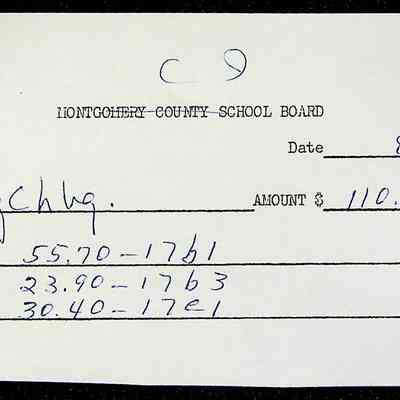 C 9
MONTGOMERY COUNTY SCHOOL BOARD
Date 8
gChbg. AMOUNT $ 110.
55.70-17b1
23.90-17b3
30.40-17e1